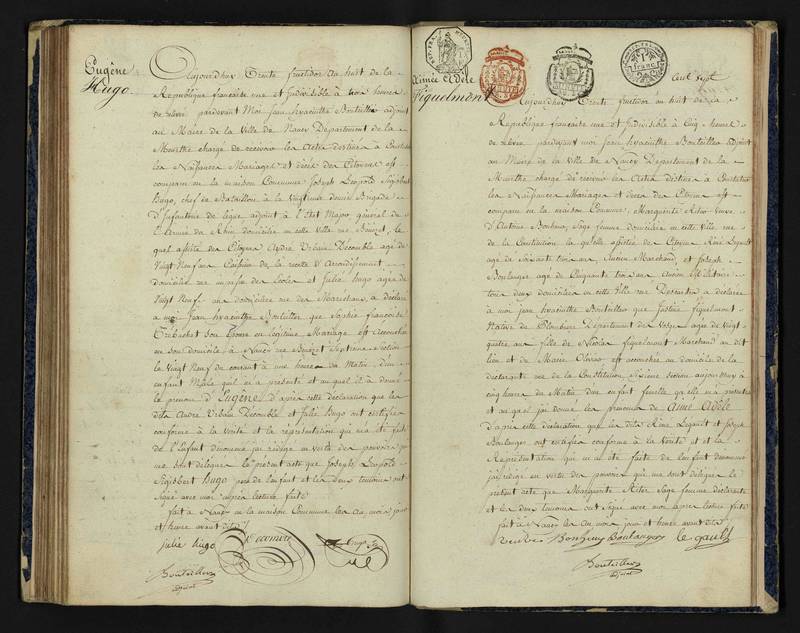 Eugène
Hugo.
Aujourd'huy Trente fructidor an huit de la
Republique française une et Indivisible à trois heures
de relevé pardevant Moi Jean hyacinthe Bouteiller adjoint
au Maire de la Ville de Nancy Departement de la
Meurthe chargé de recevoir les Actes destinés à Constater
les Naissances Mariages et décès des Citoyens est
comparu en la maison Commune Joseph Leopold Sigisbert
Hugo, chef de Bataillon à la vingtieme demie Brigade
D'Infanterie de ligne adjoint à l'Etat Major général de
l'Armée du Rhin domicilié en cette ville rue
quel assisté des Citoyens André Urbain agé de
Vingt Neuf ans Caissier de la recette d'Arrondissement
domicilié rue des Ecoles et Julie Hugo agée de
Vingt Neuf ans domiciliée rue des Marechaux, a déclaré
a moi Jean hyacinthe Bouteiller que Sophie françoise
Trebuchet son Epouse en légitime Mariage est accouchée
en son domicile à Nancy rue Septieme Section
le Vingt Neuf du courant à une heure du Matin d'un
enfant Male qu'il m'a presenté et auquel il a donné
le prenom d'Eugène D'après cette déclaration que les
dits André Urbain et Julie Hugo ont certifiée
conforme à la verité et la réprésentation qui m'a été faite
de l'Enfant denommé j'ai rédigé en vertu des pouvoirs qui
me sont délégués le présent acte que Joseph Leopold
Sigisbert Hugo pere de l'enfant et les deux temoins ont
signé avec moi après lecture faite
fait à Nancy en la maison Commune les an mois jour
et heure avant dits
julie hugo
Bouteiller
adjoint
REP. FRA.
1 franc
Cent Sept
Aimée Adèle
Figuelmont
Aujourd'huy Trente fructidor an huit de la
Republique française une et Indivisible à Cinq heures
de relevé pardevant moi Jean hyacinthe Bouteiller adjoint
au Maire de la Ville de Nancy Departement de la
Meurthe chargé de recevoir les Actes destinés à Constater
les Naissances Mariages et deces des Citoyens est
comparu en la maison Commune, Marguerite Veuve
d'Antoine Bonheur, Sage femme domiciliée en cette Ville rue
de la Constitution laquelle assistée des Citoyens Réné Legault
agé de soixante trois ans, Ancien Marchand, et Joseph
Boulanger agé de Cinquante trois ans Ancien Militaire
tous deux domiciliés en cette Ville rue a déclarée
à moi jean hyacinthe Bouteiller que Justine figuelmont
Native de Plombiere Departement des Vosges agée de Vingt
quatre ans fille de Nicolas figuelmont Marchand au dit
lieu et de Marie est accouchée au domicile de la
declarante rue de la Constitution, Sixieme section aujourdhuy à
Cinq heures du Matin d'un enfant femelle qu'elle m'a presentée
et auquel j'ai donné les prenoms de Aimée Adèle
D'après cette déclaration que les dits Réné Legault et Joseph
Boulanger ont certifiée conforme à la Verité et la
Représentation qui m'a été faite de l'enfant denommée
j'ai rédigé en vertu des pouvoirs qui me sont délégués le
présent acte que Marguerite Sage femme declarante
et les deux temoins ont signé avec moi après lecture faite
fait à Nancy les An mois jour et heure avant dits
veuve Bonheur Boulanger le gault
Bouteiller
adjoint